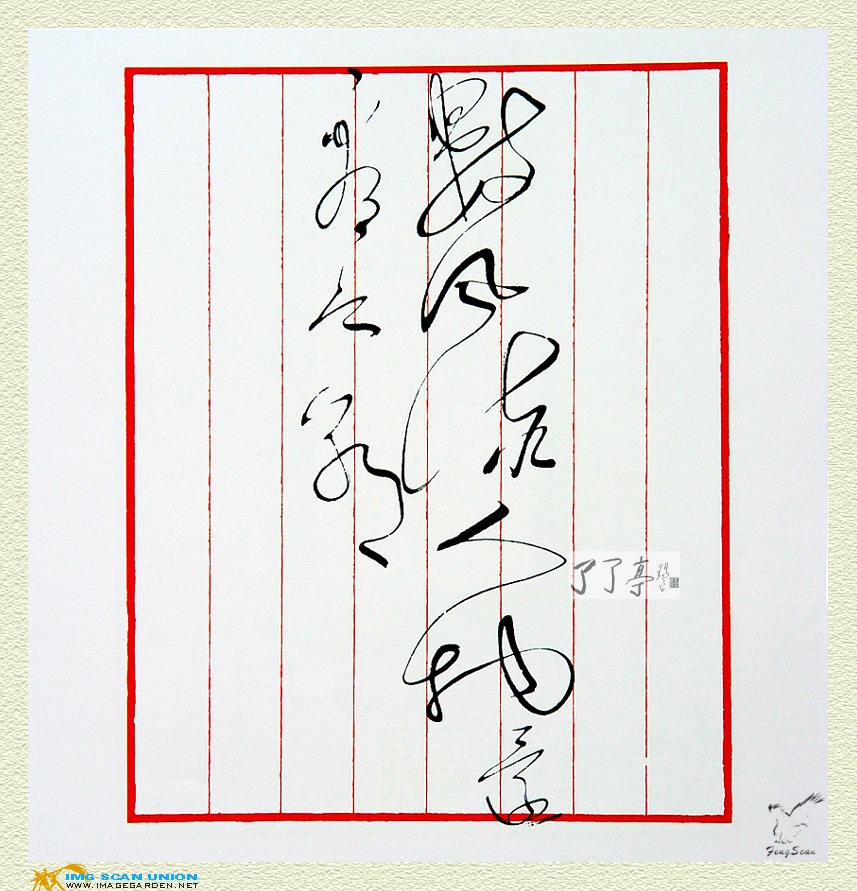 數風流人物還
看今朝
了了亭
FengScan
IMG SCAN UNION
WWW.IMAGEGARDEN.NET